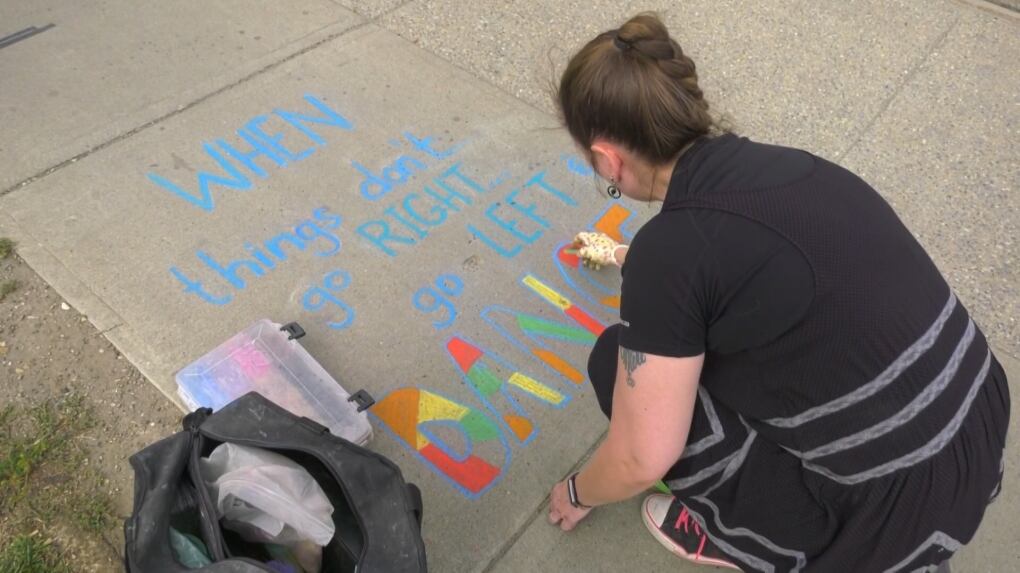 WHEN
things don't
go RIGHT...
go LEFT
DANCE